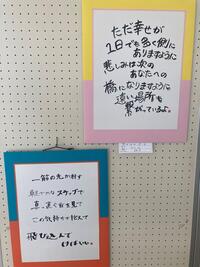 ただ幸せが
1日でも多く側に
ありますように
悲しみは次の
あなたへの
橋になりますように
遠い場所も
繋がっているよ。
一筋の光が射す
軽やかなステップで
真、直ぐ前を見て
この気持ちを込んで
飛びこんで
いけばいい。